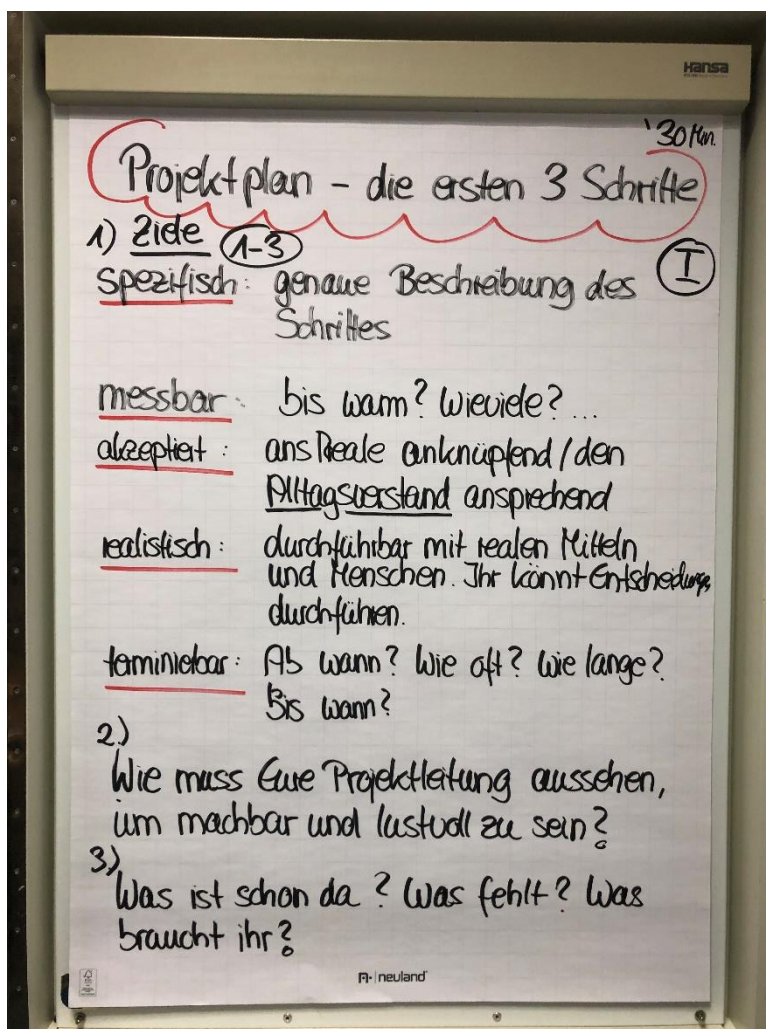 Hansa
'30 Min.
Projektplan - die ersten 3 Schritte
1) Ziele 1-3
I
spezifisch: genaue Beschreibung des
Schrittes
messbar: bis wann? Wieviele?...
akzeptiert: ans Reale anknüpfend / den
Alltagsverstand ansprechend
realistisch: durchführbar mit realen Mitteln
und Menschen. Ihr könnt Entscheidungs
durchführen.
terminierbar: Ab wann? Wie oft? Wie lange?
Bis wann?
2)
Wie muss Eure Projektleitung aussehen,
um machbar und lustvoll zu sein?
3)
Was ist schon da? Was fehlt? Was
braucht ihr?
neuland